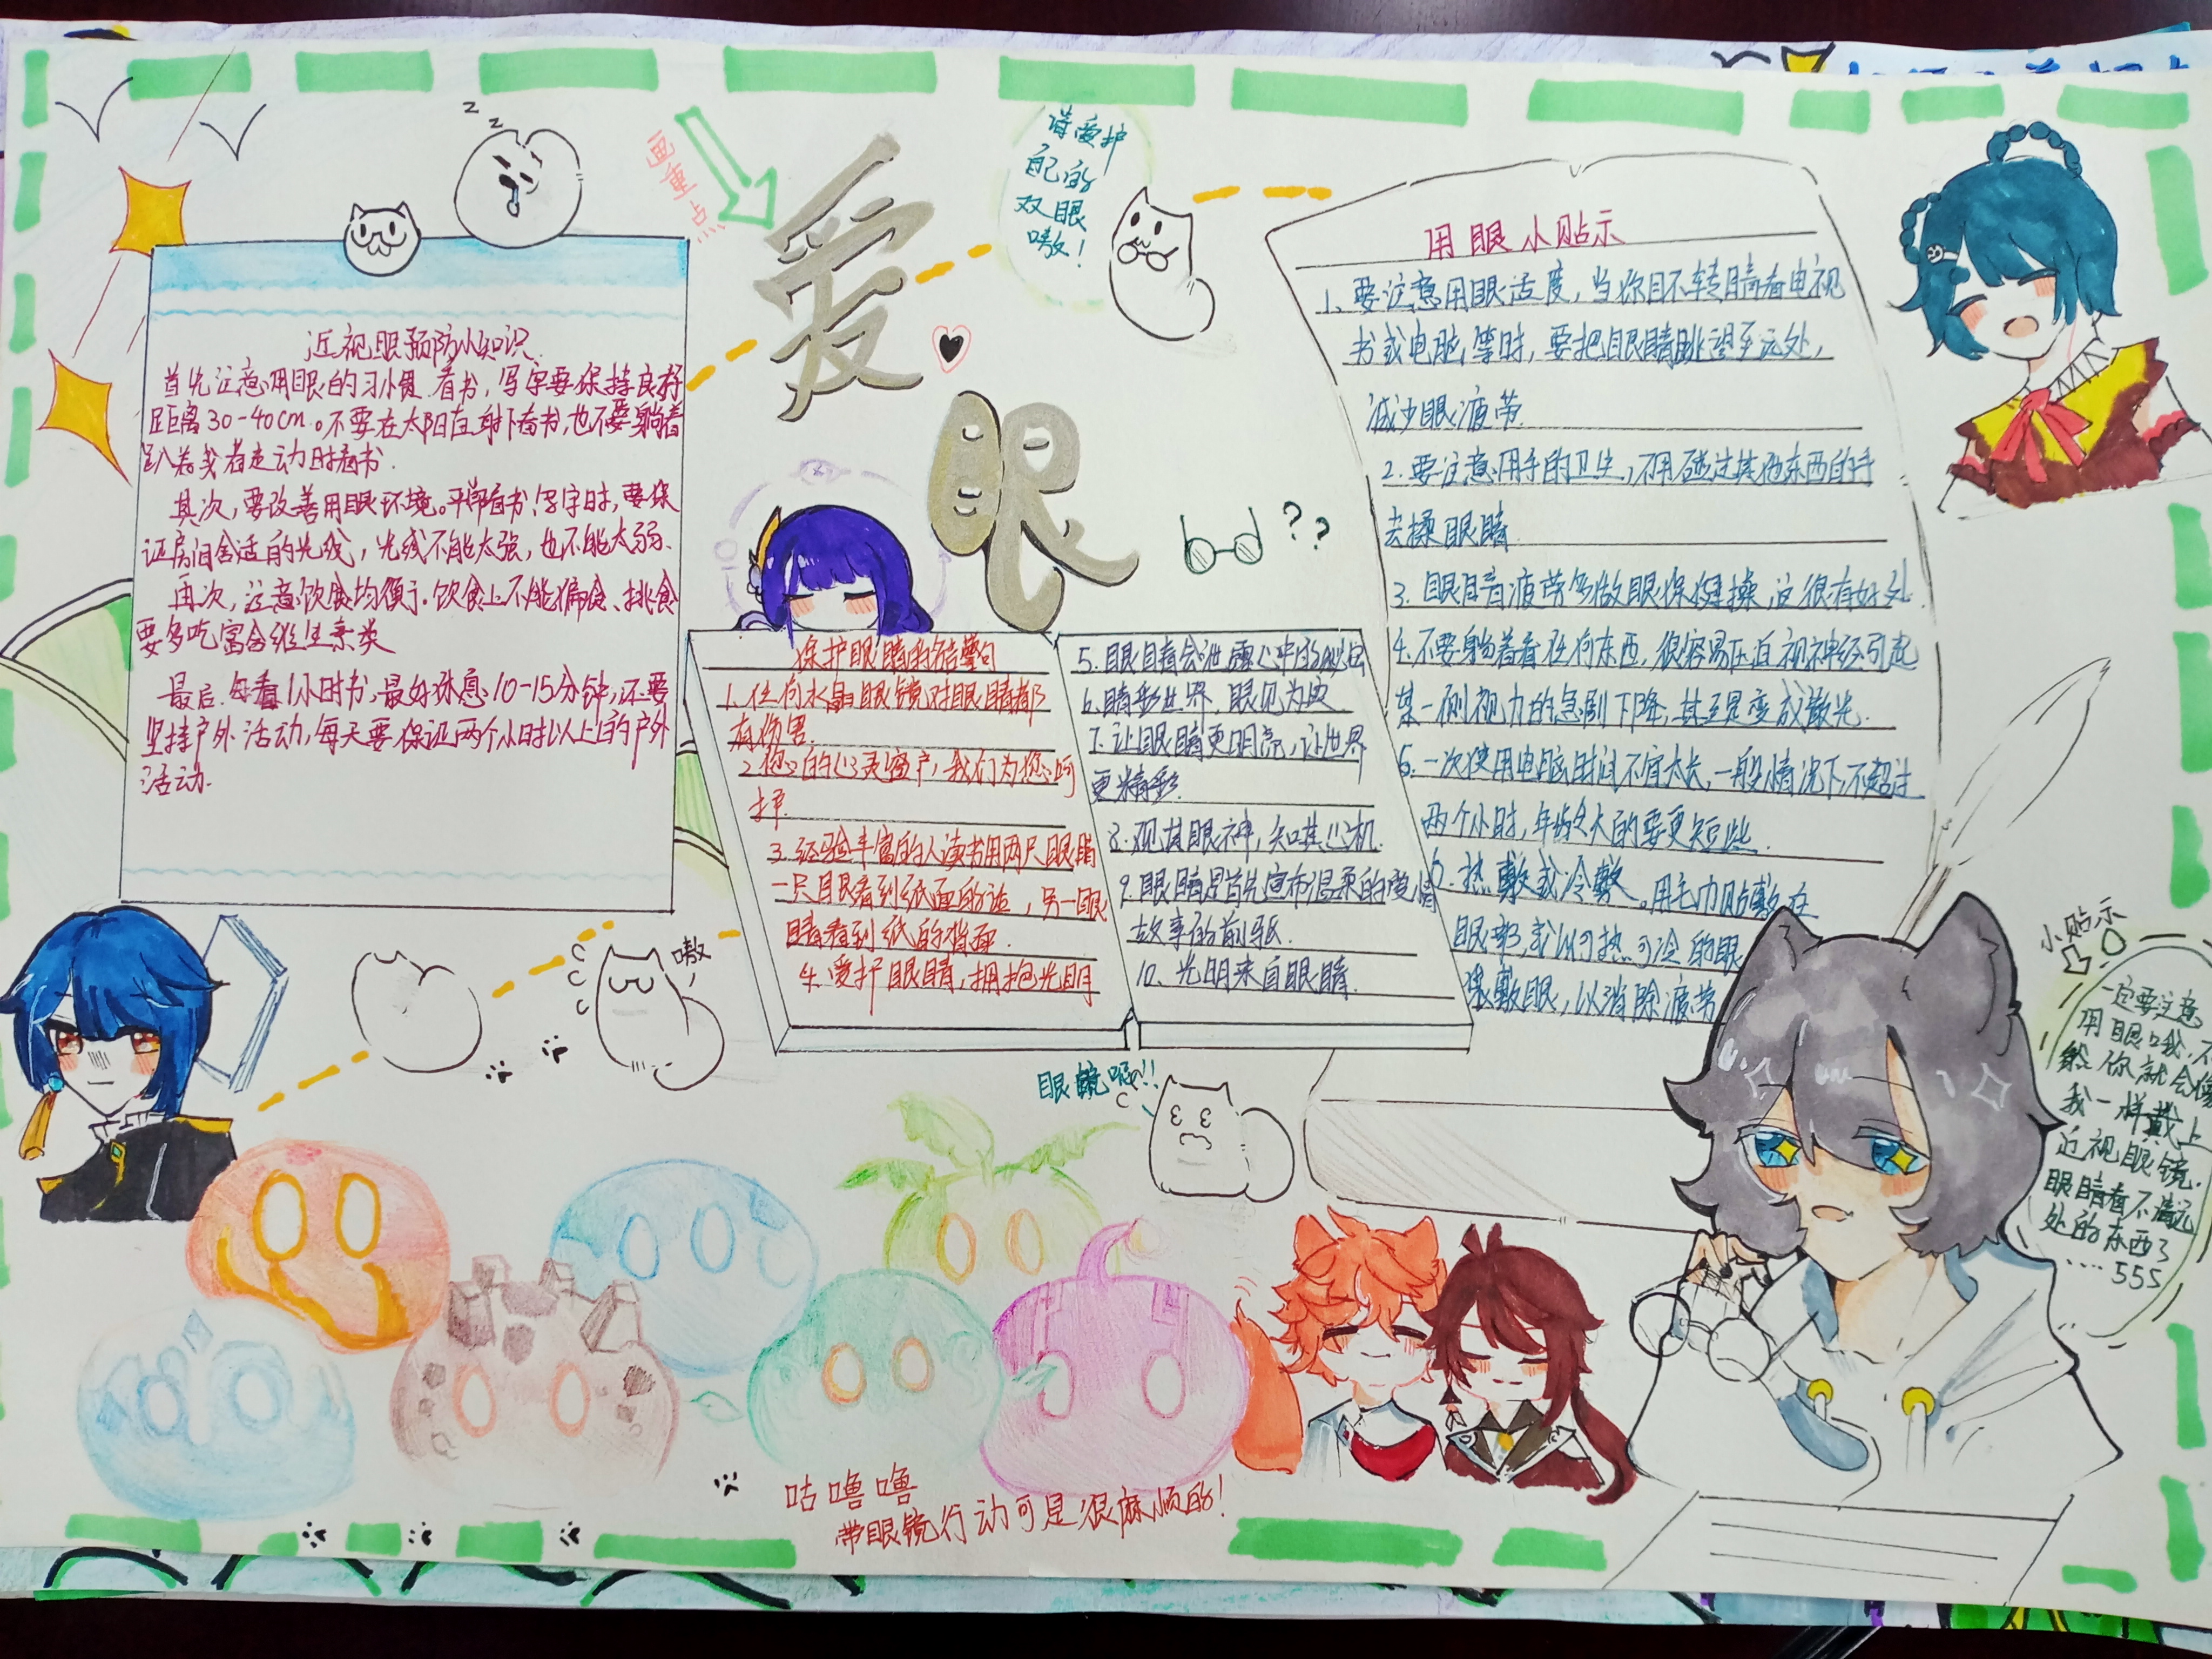 画重点
爱
眼
请爱护
自己的
双眼
嗷！
近视眼预防小知识
首先注意用眼的习惯.看书，写字要保持良好
距离30-40cm。不要在太阳直射下看书，也不要躺着
趴着或者走动时看书.
其次，要改善用眼环境。平常看书写字时，要保
证房间舍适的光线，光线不能太强，也不能太弱、
再次，注意饮食均衡。饮食上不能偏食、挑食
要多吃富含维生素类
最后.每看1小时书，最好休息10-15分钟，还要
坚持户外活动，每天要保证两个小时以上的户外
活动.
保护眼睛的名言警句
1.任何水晶眼镜对眼睛都
有伤害.
2.您的心灵窗户，我们为您呵
护.
3.经验丰富的人读书用两只眼睛
一只眼看到纸面的话，另一眼
睛看到纸的背面.
4.爱护眼睛，拥抱光明
5.眼睛会泄露心中的秘密
6.睛彩世界，眼见为实
7.让眼睛更明亮，让世界
更精彩.
8.观其眼神，知其心机.
9.眼睛是首先宣布温柔的爱情
故事的前驱.
10.光明来自眼睛.
用眼小贴示
1、要注意用眼适度，当你目不转睛看电视
书或电脑等时，要把眼睛眺望至远处，
减少眼疲劳.
2.要注意用手的卫生，不用碰过其他东西的手
去揉眼睛
3.眼睛疲劳多做眼保健操，这很有好处.
4.不要躺着看任何东西，很容易压迫视神经引起
某一侧视力的急剧下降，甚至是变成散光.
5.一次使用电脑时间不宜太长，一般情况下，不超过
两个小时，年龄大的要更短些.
6.热敷或冷敷。用毛巾贴敷在
眼部，或以可热可冷的眼
袋敷眼，以消除疲劳
??
嗷
眼镜呢!!
小贴示
一定要注意
用眼哦，不
然你就会像
我一样戴上
近视眼镜.
眼睛看不清远
处的东西了
....555
咕噜噜
带眼镜行动可是很麻烦的！